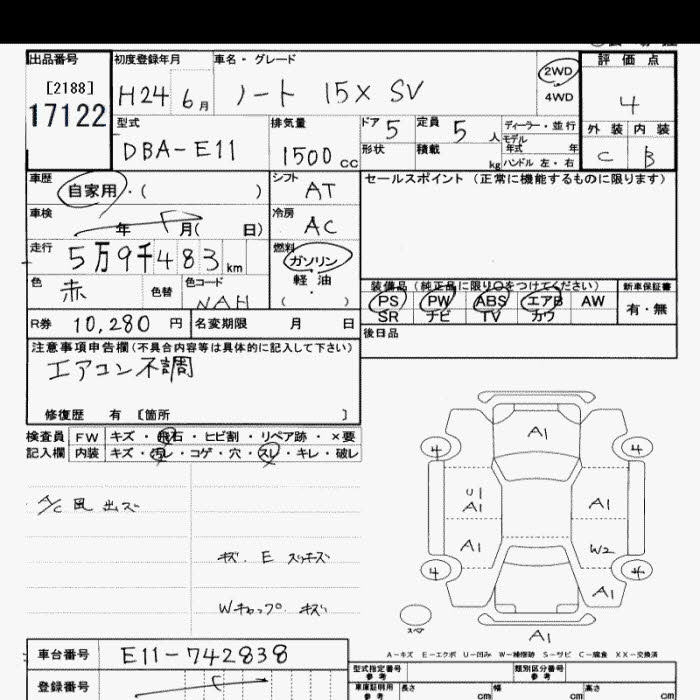 出品番号 初度登録年月 車名・グレード 2WD 評価点
[2188] H24 6月 ノート 15X SV 4WD 4
17122
型式 排気量 ドア 5 定員 5人 ディーラー・並行 外装 内装
DBA-E11 1500cc 形状 積載 kg モデル年式 年 C B
ハンドル 左・右
車歴 自家用・( ) シフト AT セールスポイント (正常に機能するものに限ります)
車検 年 月( 日) 冷房 AC
走行 5万9千483km 燃料 ガソリン
軽油
( )
色 赤 色替 色コード NAH 装備品 (純正品に限り○をつけてください) 新車保証書
PS PW ABS エアB AW 有・無
SR ナビ TV カワ
R券 10,280円 名変期限 月 日 後日品
注意事項申告欄(不具合内容等は具体的に記入して下さい)
エアコン不調
修復歴 有 [箇所 ]
検査員 FW キズ・飛石・ヒビ割・リペア跡・×要
記入欄 内装 キズ・汚レ・コゲ・穴・スレ・キレ・破レ
A1
4 4
U1
A1 A1
A/C 風 出ズ
A1 W2
キズ. E スリキズ
4 4
A1
Wキャップ キズ
スペア
A1
A-キズ E-エクボ U-凹み W-補修跡 S-サビ C-腐食 XX-交換済
車台番号 E11-742838
登録番号
型式指定番号 参考 類別区分番号 参考
車庫証明用 参考 長さ cm 幅 cm 高さ cm